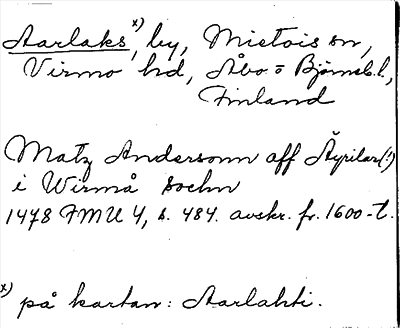 Aarlaks x), by, Mietois sn,
Virmo hd, Åbo o Björneb. l.,
Finland
Matz Andersonn aff Äyrilax(!)
i Wirmå sochn
1478 FMU 4, s. 484. avskr. fr. 1600-t.
x) på kartan: Aarlahti.